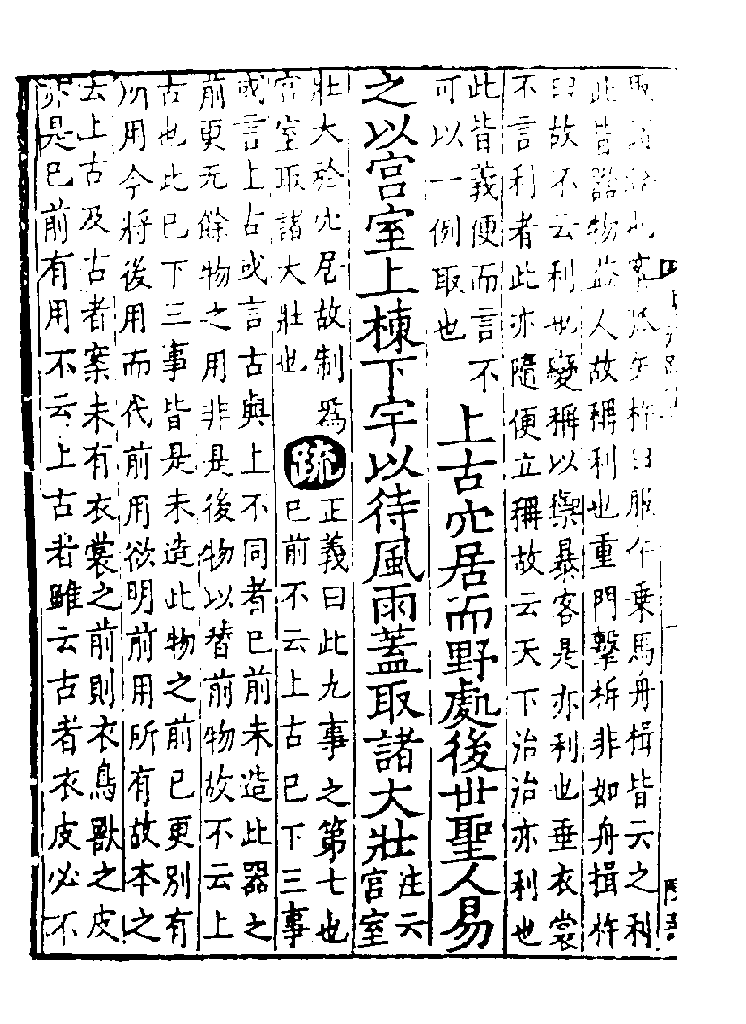 矢杵臼服牛乘馬舟楫皆云之利
此皆器物益人故稱利也重門擊柝非如舟楫杵
臼故不云利也變稱以禦暴客是亦利也垂衣裳
不言利者此亦隨便立稱故云天下治治亦利也
此皆義便而言不
可以一例取也
上古穴居而野處後世聖人易
之以宮室上棟下宇以待風雨蓋取諸大壯
注云
宮室
壯大於穴居故制為
宮室取諸大壯也
疏
正義曰此九事之第七也
已前不云上古已下三事
或言上古或言古與上不同者已前未造此器之
前更无餘物之用非是後物以替前物故不云上
古也此已下三事皆是未造此物之前已更別有
所用今將後用而代前用欲明前用所有故本之
云上古及古者案未有衣裳之前則衣鳥獸之皮
亦是已前有用不云上古者雖云古者衣皮必不